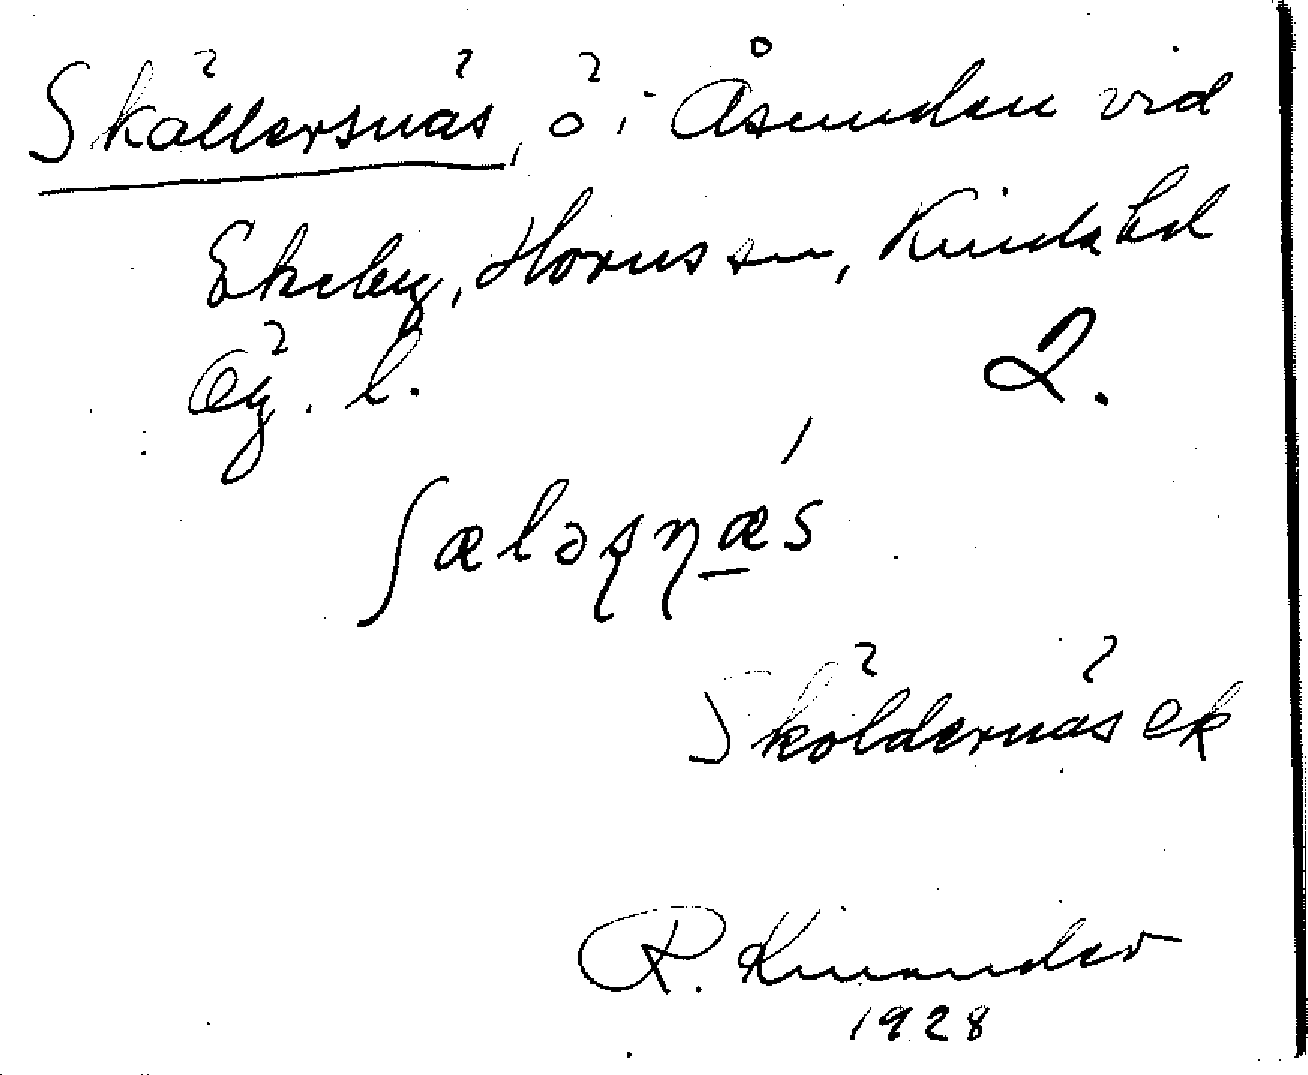 Skällersnäs, ö i Åsunden vid
Ekeby, Horns sn, Kinda hd
Ög. l. 2.
ʃæləʂɳæs
Sköldernäs ek
R. Kinander
1928